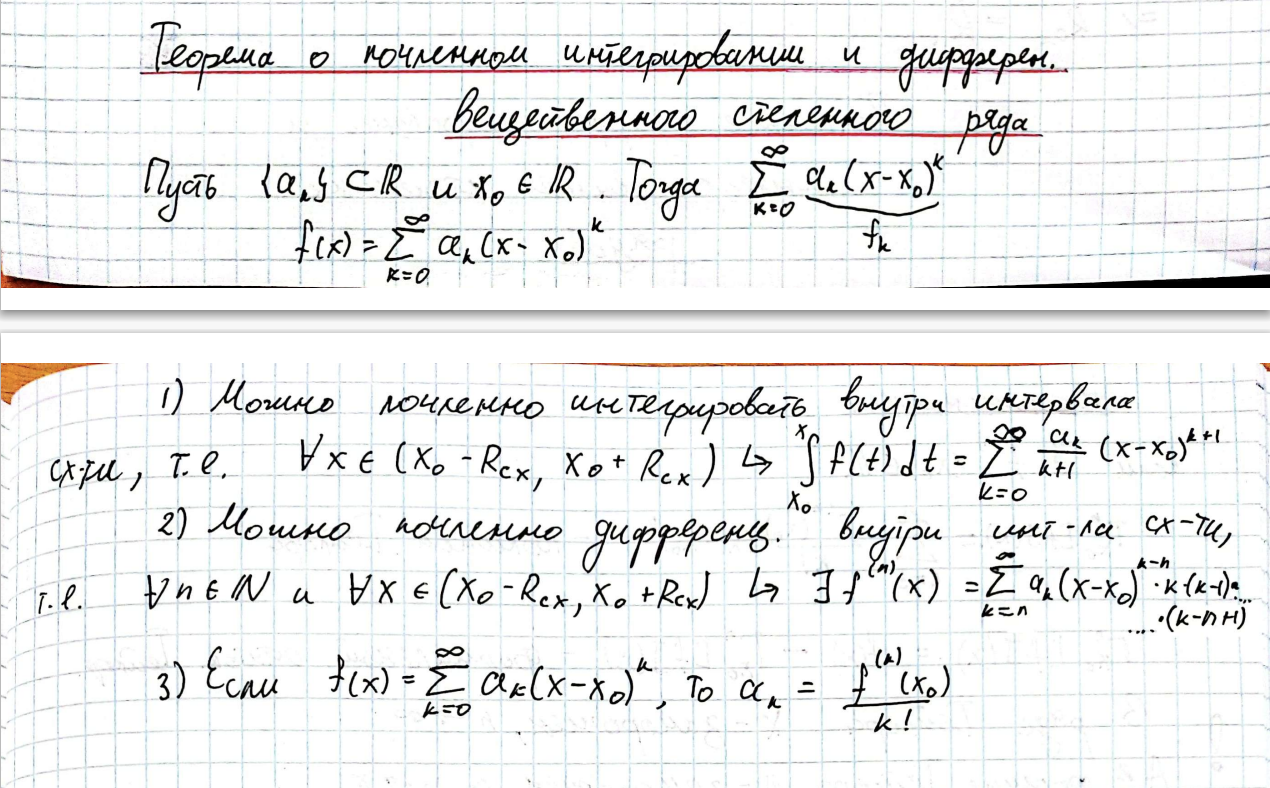 Теорема о почленном интегрировании и дифферен.
вещественного степенного ряда
Пусть {aₖ} ⊂ ℝ и x₀ ∈ ℝ. Тогда ∑_{k=0}^{∞} aₖ(x-x₀)^k
fₖ
f(x) = ∑_{k=0}^{∞} aₖ(x - x₀)^k
1) Можно почленно интегрировать внутри интервала
сх-ти, т.е. ∀x ∈ (x₀ - R_сх, x₀ + R_сх) ↳ ∫_{x₀}^{x} f(t)dt = ∑_{k=0}^{∞} aₖ/(k+1) (x-x₀)^{k+1}
2) Можно почленно дифференц. внутри инт-ла сх-ти,
т.е. ∀n ∈ ℕ и ∀x ∈ (x₀ - R_сх, x₀ + R_сх) ↳ ∃ f^{(n)}(x) = ∑_{k=n}^{∞} aₖ(x-x₀)^{k-n} · k·(k-1)·...
....·(k-n+1)
3) Если f(x) = ∑_{k=0}^{∞} aₖ(x-x₀)^k, то aₖ = f^{(k)}(x₀)/k!